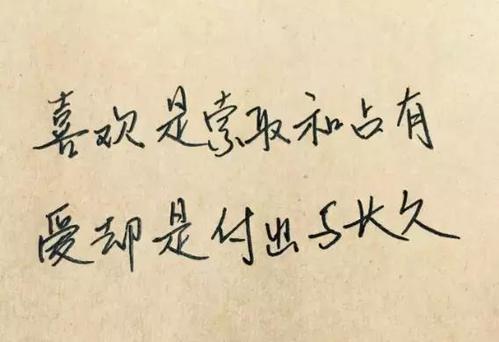 喜欢是索取和占有
爱却是付出与长久